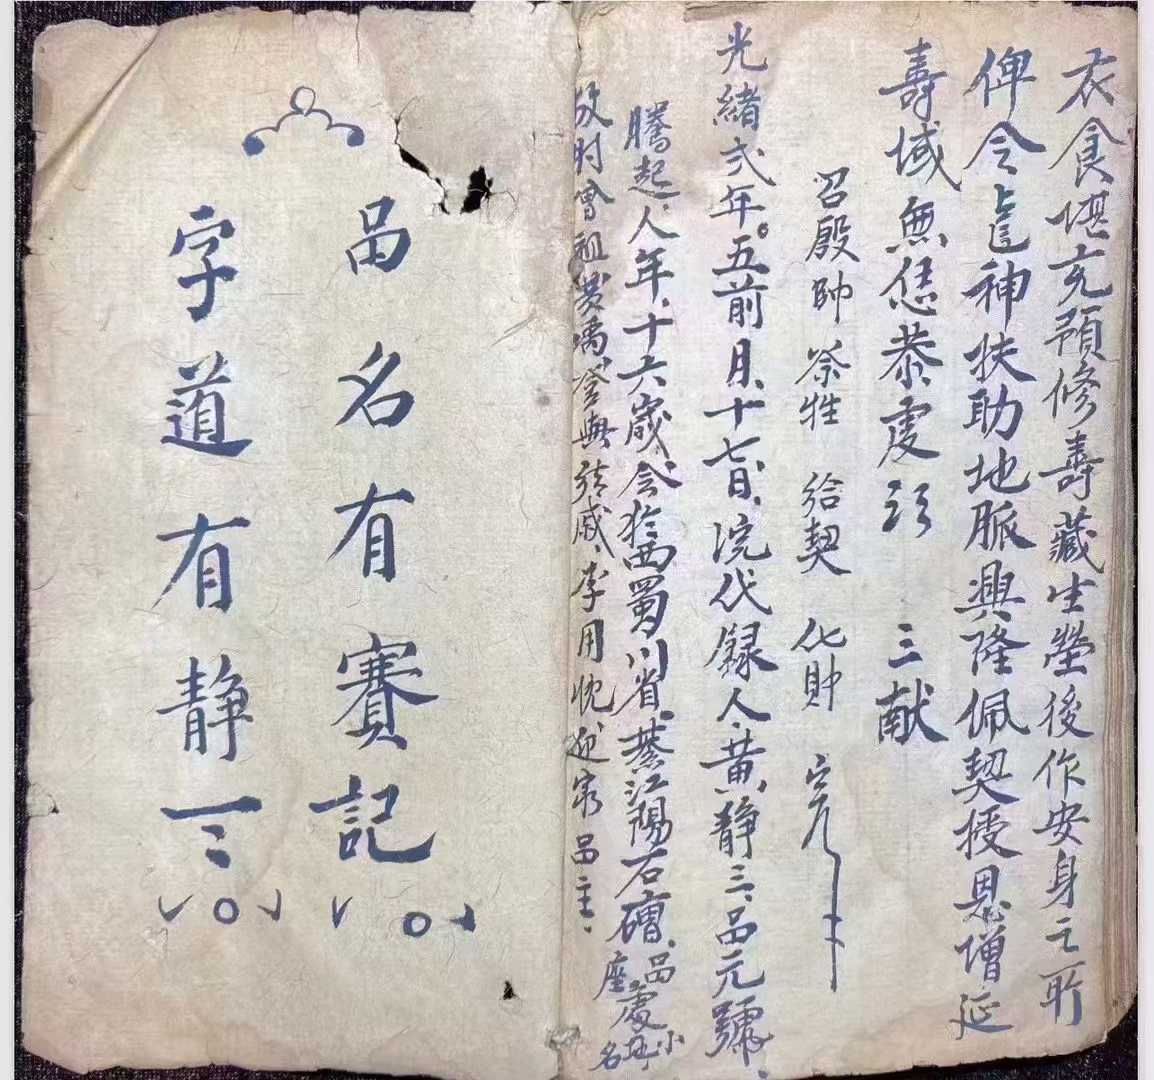 衣食堪充預修壽藏生塋後作安身之所
俾令神扶助地脈興隆佩契授恩增延
壽域無恁恭虔 三献
召殷帥 祭牲 給契 化財 完
光緒弍年五前月十七日浣代録人黄静三品元號
騰起人年十六歲今於西蜀川省綦江陽石礄品處地小
座名
故时曾祖 與 李用 迎 品主
品名有賽記
字道有静三